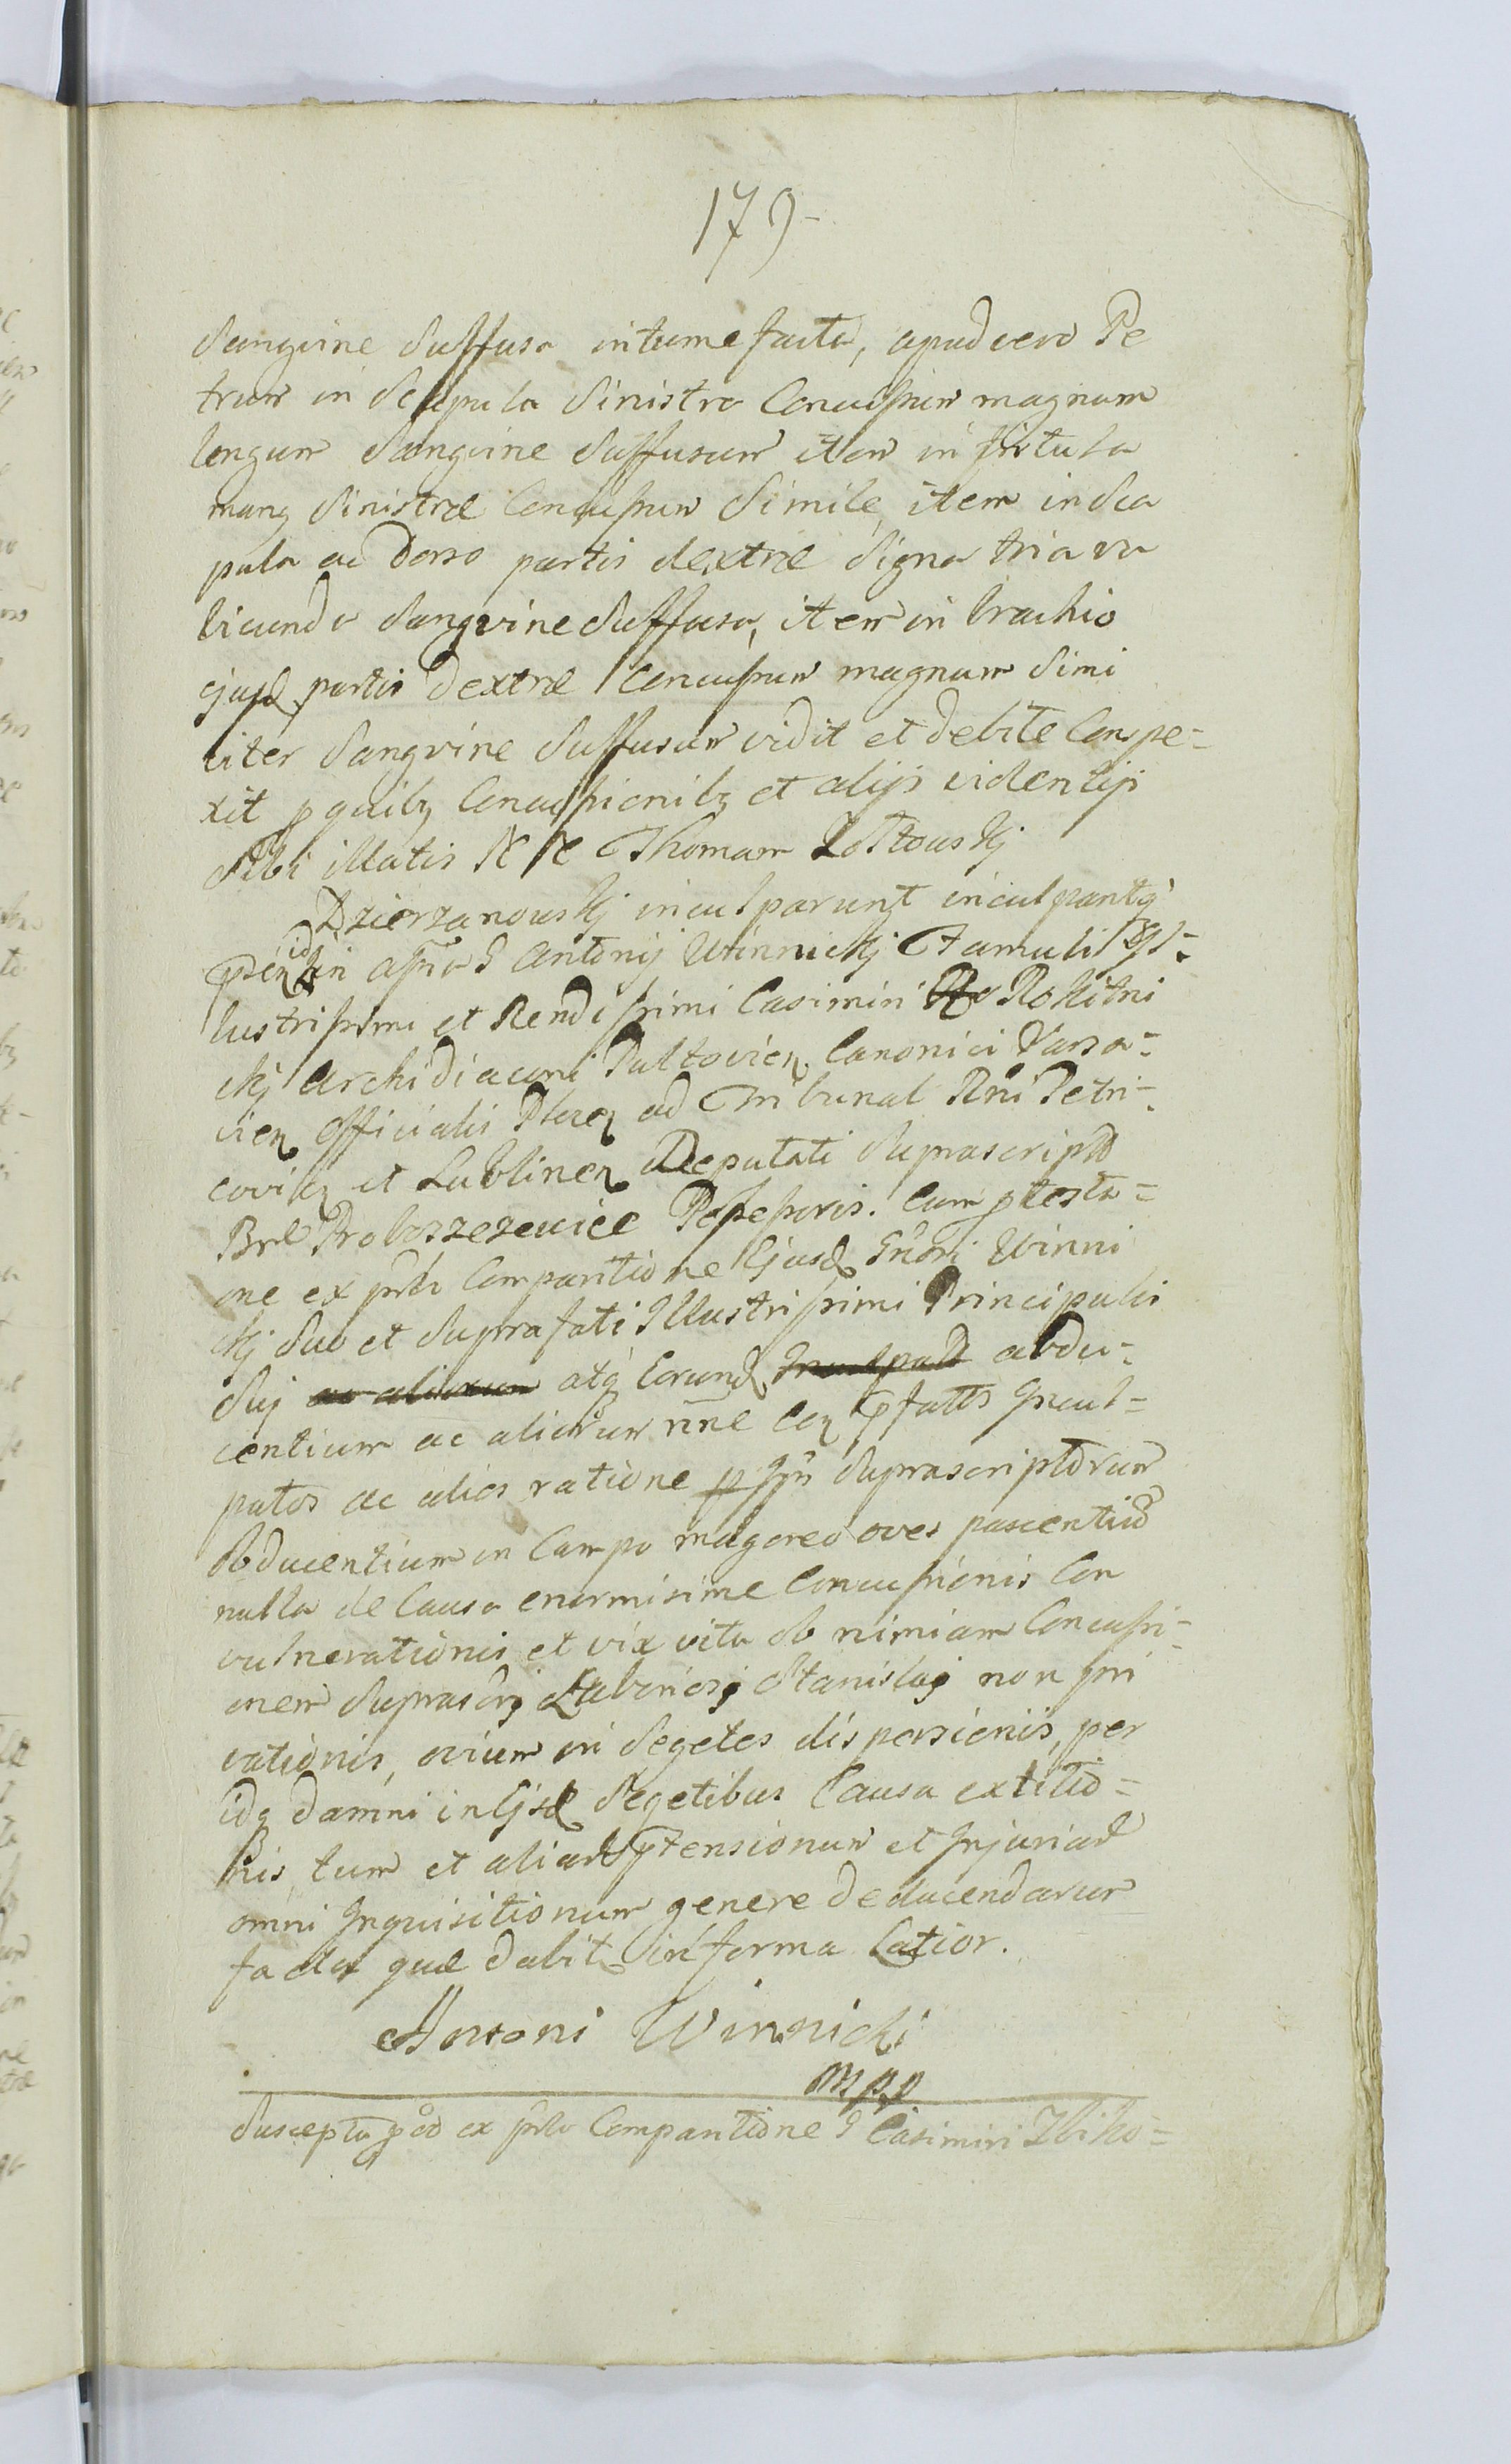 179
Sangvine Suffusa intumefacta, apud vero Pe
trum in Scapula Sinistra Concussum magnum
longum Sangvine Suffusum item in fistula
manq Sinistræ Concussum Simile, item in Sca
pula ac Dorso partis dextræ Signa tria ru
bicunda Sangvine Suffusa, item in brachio
ejusd partis Dextræ Concussum magnum Simi
liter Sangvine Suffusum vidit et debite Conspe=
xit p quibq Concussionibq et alijs violentijs
Sibi illatis N N Thomam Zołtowskj
Dzierzanowskj inculparunt inculpantq
in aſſtia G Antonij Winnickj Famuli Jl=
lustrissimi et Rendissimi Casimiri Rokitni
ckj Archidiaconi Pultovien Canonici Varsa=
vien Officialis Plocen ad Tribunal Rni Petri=
covien et Lublinen Deputati Suprascript
Bnl Proboszczewice Possessoris. Cum ptesta=
one ex pnti Comparitione Ejusd Gnosi Winni
ckj Suo et Suprafati Illustrissimi Principalis
Sui ac aliorum atq Eorund Inculpatt obdu=
centium ac aliorum nne Con Pfatos Incul=
patos ac alios ratione Suprascriptorum
obducentium in Campo oves pascentiu
nulla de Causa enormissime Concussionis Con
vulnerationis et vix vita ob nimiam Concussi=
onem Suprascrj Laboriosj Stanislaj non pri
vationis, ovium in Segetes dispersionis, per
idq Damni in Ejsd Segetibus Causa extitio=
nis, tum et aliar Ptensionum et Injuriar
omni Inquisitionum genere deducendarum
facta quæ dabit in forma latior.
Antoni Winnicki
mpp
Suscepta pod ex pnti Comparitione G Casimiri Zbiko=